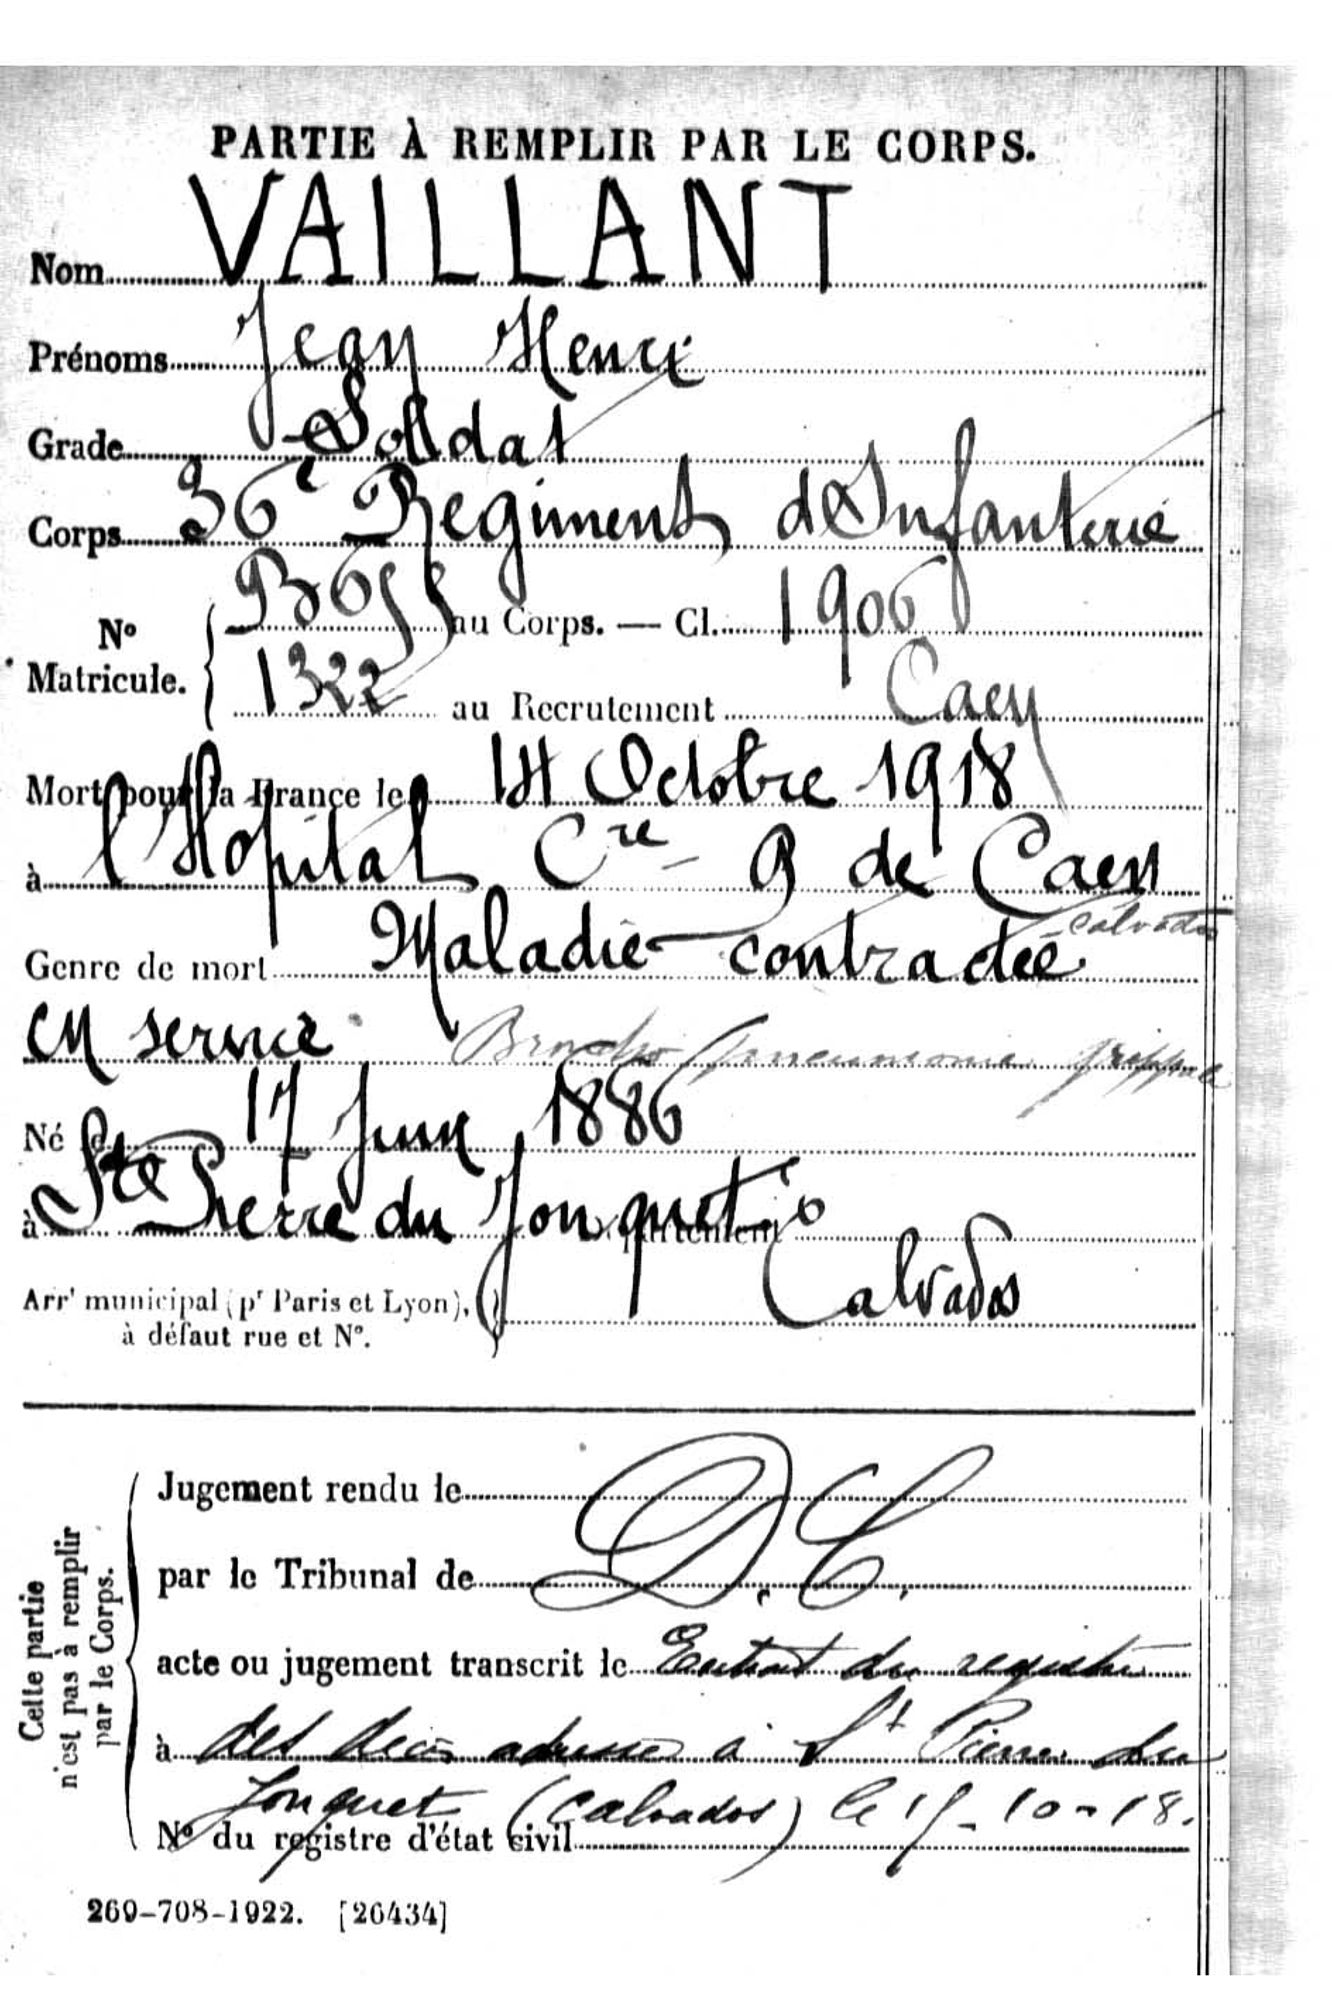 PARTIE À REMPLIR PAR LE CORPS.
Nom VAILLANT
Prénoms Jean Henri
Grade Soldat
Corps 36e Régiment d'Infanterie
No Matricule. au Corps. — Cl. 1906
1322 au Recrutement Caen
Mort pour la France le 14 Octobre 1918
à l'Hôpital Cre B de Caen
Calvados
Genre de mort Maladie contractée
en service Broncho pneumonie grippale
Né le 17 Juin 1886
à Ste Pierre du Jonquet Département
Arrt municipal (pr Paris et Lyon), Calvados
à défaut rue et No.
Cette partie n'est pas à remplir par le Corps.
Jugement rendu le
par le Tribunal de D.C.
acte ou jugement transcrit le Extrait du registre
à des décès adressé à St Pierre du
Jonquet (Calvados) le 15-10-18.
No du registre d'état civil
269-708-1922. [26434]